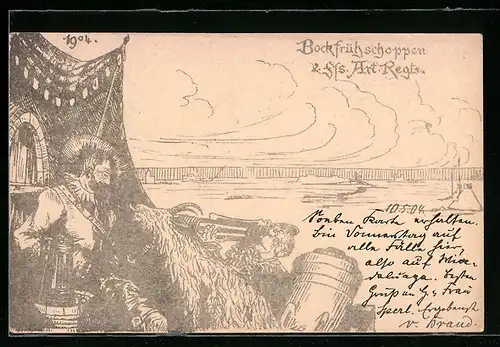 1904.
Bockfrühschoppen
2. Fſs. Art. Regts.
10.5.04
Soeben Karte erhalten,
bin Donnerstag auf
alle Fälle hier,
also auf Wie-
Besten
Gruß an G. Frau
Sperl. Ergebenst
v. Brand.